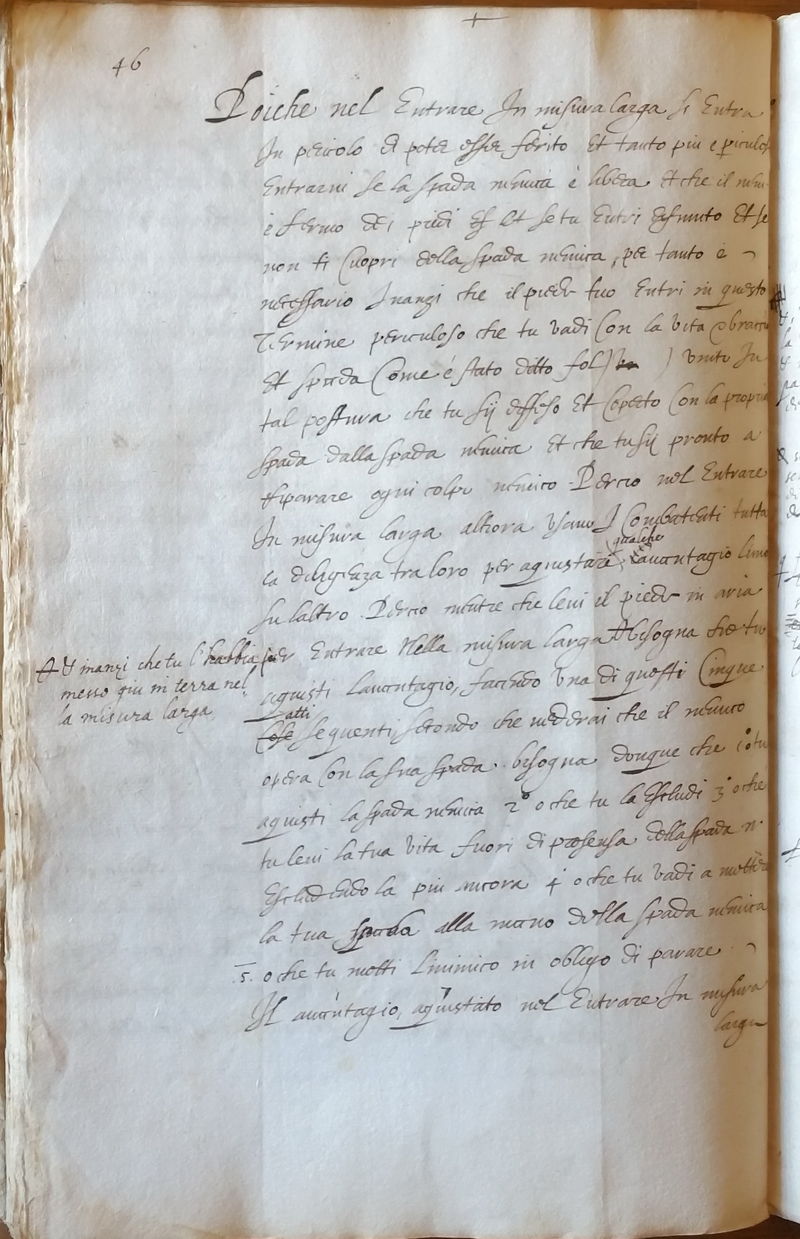 46
Poiche nel Entrare In misura larga si Entra
In pericolo di poter esser ferito Et tanto piu e periculos
Entrarui se la spada nemica è libera et che il nem
è fermo dei piedi Et se tu Entri disunito Et se
non ti Cuopri della spada nemica, per tanto è
necessario Inanzi che il piede tuo Entri in questo
Termine periculoso che tu vadi Con la vita braccio
Et spada Come é stato ditto fol ) unito In
tal postura che tu sij diffeso Et Coperto Con la propria
spada dalla spada nemica et che tu sij pronto a
riparare ogni colpo nemico. Percio nel Entrare
In misura larga alhora usano I Combatenti tutta
qualche
la diligenza tra loro per agiustare auuentagio l'uno
su laltro. Percio mentre che leui il piede in aria
per Entrare Nella misura larga bisogna che tu
Et inanzi che tu l'habbia
messo giu in terra nel
la misura larga
agiusti Lauentagio, facendo Una di questi Cinque
atti
Cose sequenti secondo che uederai che il nemico
opera Con la sua spada. bisogna donque che 1° o tu
agiusti la spada nemica 2° o che tu la Escludi 3° o che
tu leui la tua Vita fuori di presensa della spada n.
Escludendo la piu ancora 4° o che tu vadi a metter
la tua spada alla mano della spada nemica
.5. o che tu metti Linimico in obligo di parare
Il auentagio, agiustato nel Entrare In misura
larga